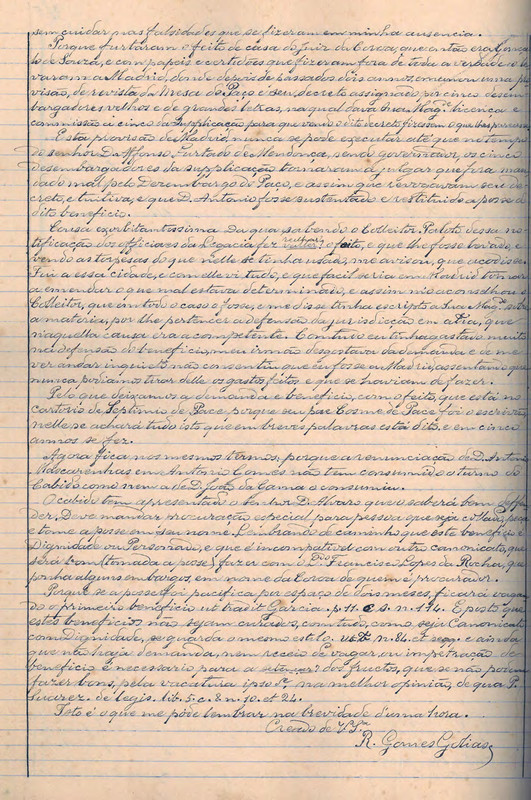 sem cuidar nas falsidades que se fizeram em minha ausencia.
Porque furtaram o feito de casa do Juiz da Coroa, que então era Gonça
lo de Souza, e com papeis e certidões que fizeram fora de toda a verdade o le
varam a Madrid, donde depois de passados dois annos, em uma pro
visão, de revista da Mesa do Paço e seu decreto assignado por cinco desem
bargadores velhos e de grandes letras, na qual dava Sua Mag.e licença e
commissão a cinco da Supplicação para que vendo o dito decreto fizessem o que lhes parecesse
Esta provisão de Madrid nunca se pode executar até que no tempo
do senhor D. Affonso Furtado de Mendonça, sendo governador, os cinco
desembargadores da supplicação tornaram a julgar que fôra man
dado mal pelo Desembargo do Paço, e assim que revogavam seu de
creto, e que D. Antonio fosse sustentado e restituido a posse do
dito beneficio.
Cousa exorbitantissima da qual sabendo o Colleitor Paloto dessa no
tificação dos officiaes da Legacia fez o feito, e que lhe fosse levado, e
vendo as torpesas do que nelle se tinha usado, me avisou, que acodisse.
Fui a essa cidade, e com elle vi tudo, e que facil seria em Madrid tornar
a emendar o que mal estava determinado, e assim m'o aconselhou o
Colleitor, que em todo o caso o fosse, e me disse tinha escripto a Sua Mag.e sobre
a materia, por lhe pertencer a defensão da jurisdicção, que
naquella causa era a competente. Comtudo eu tinha gastado muito
na defensão do beneficio, meu irmão desgostava da demanda e de me
ver andar inquieto não consentiu que eu fosse a Madrid, assentando que
nunca podiamos tirar delle os gastos feitos e que se haviam de fazer.
Pelo que deixamos a demanda e beneficio, como feito, que está no
cartorio de Septimio de Pace porque seu pae Cosme de Pace foi o escrivão
nelle se achará tudo isto que em breves palavras está dito, e em cinco
annos se fez.
Agora fica nos mesmos termos, porque a renunciação de D. Antonio
Mascarenhas em Antonio Gomes não tem consumido o turno do
Cabido como nem a de D. João da Gama o consumiu.
O cabido tem apresentado o senhor D. Alvaro que o saberá bem deffen
der. Deve mandar procuração especial para pessoa que seja
e tome a posse em seu nome. Lembrando de caminho que este beneficio é
Dignidade ou Personado, e que é incompativel com outro canonicato, que
será bom (tomada a posse) fazer com o D.or Francisco Lopes da Rocha, que
ponha alguns embargos, em nome da Coroa de quem é procurador.
Porque se a posse foi pacifica por espaço de dois meses, ficará vaga
do o primeiro beneficio ut tradit Garcia p. 11. c. 5. n. 194. E posto que
estes beneficios não sejam curados, comtudo, como seja Canonicato
com Dignidade, se guarda o mesmo estilo. n. 84. et seqq. e ainda
que não haja demanda, nem receio de vagar, ou impetração do
beneficio é necessario para a dos fructos, que se não podem
fazer bons, pela vacatura ipso j.e na melhor opinião, de qua P.
Suarez. de legis. lib. 5. c. 8. n. 10. et 24.
Isto é o que me póde lembrar na brevidade d'uma hora.
Creado de V. S.ª
R. Gomes Gilias